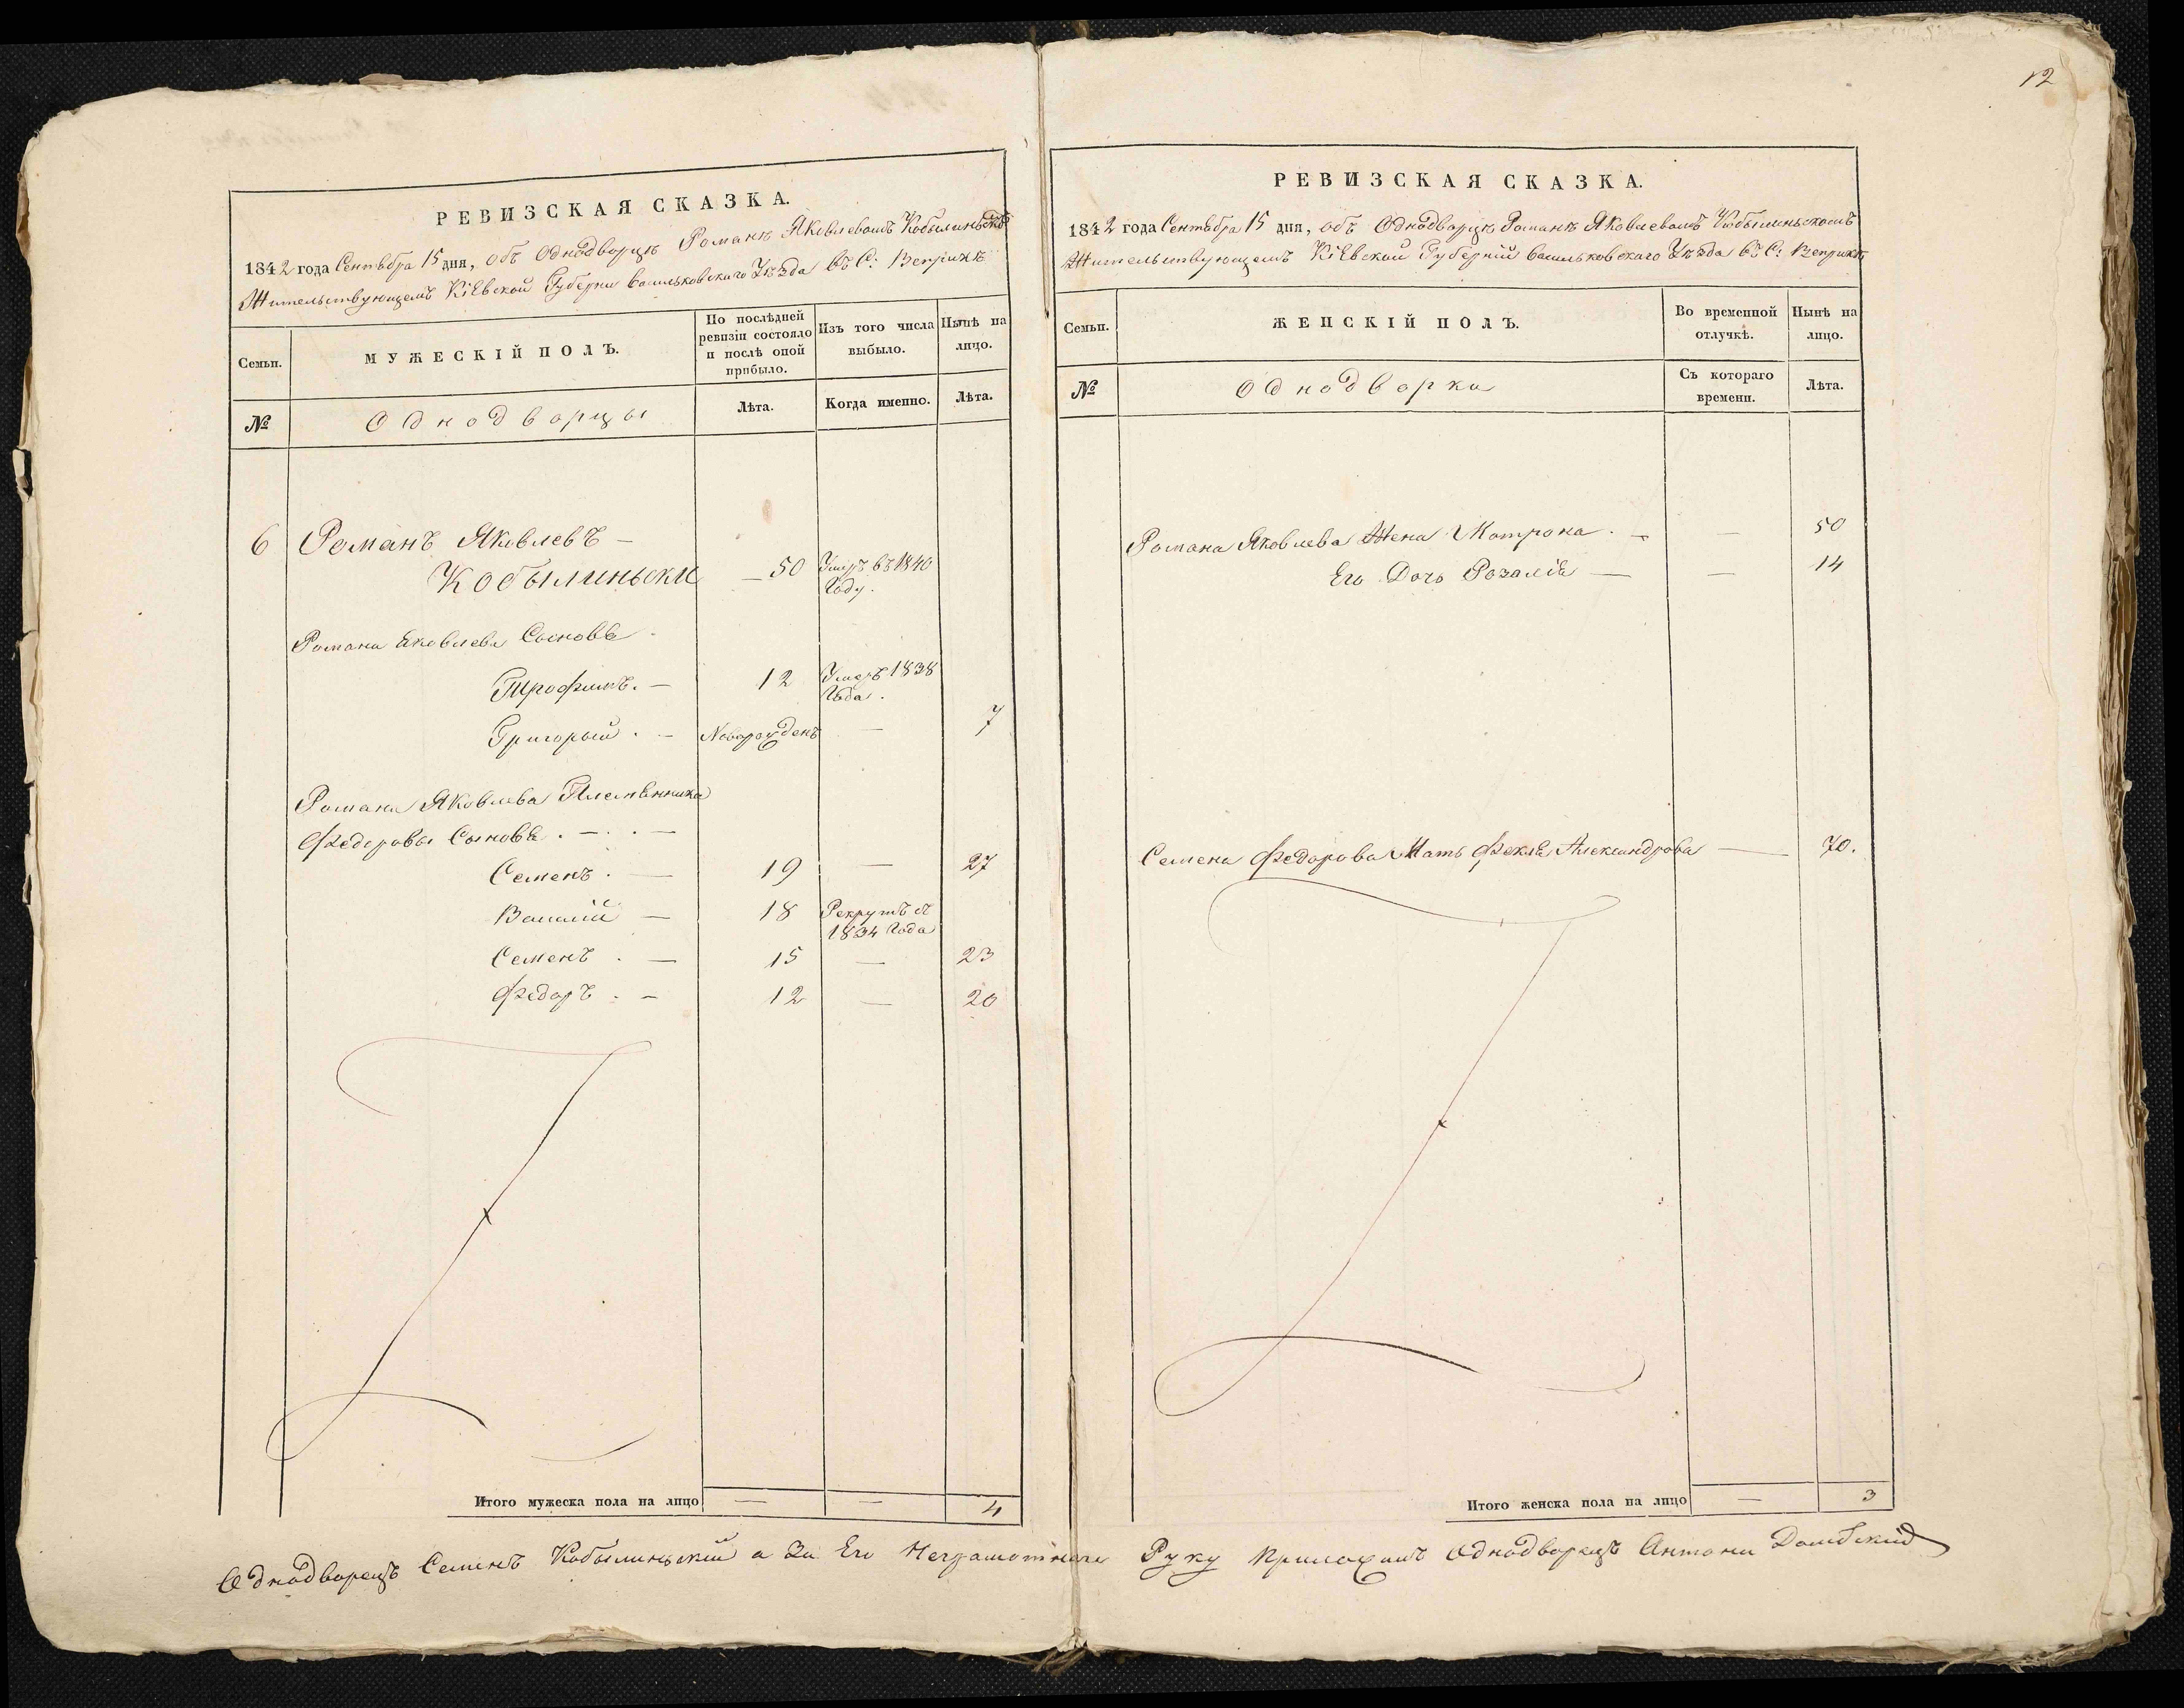 12
РЕВИЗСКАЯ СКАЗКА.
1842 года Сентебра 15 дня, объ Однодворце Романѣ Яковлевомъ Кобылиньском
Жительствующемъ Кіевской Губерни Васильковского Уѣзда въ С: Веприкѣ
Семьи.
МУЖЕСКІЙ ПОЛЪ.
По послѣдней ревизіи состояло и послѣ оной прибыло.
Изъ того числа выбыло.
Нынѣ на лицо.
№
Однодворцы
Лѣта.
Когда именно.
Лѣта.
6 Романъ Яковлевъ —
Кобылиньски — 50 Умеръ въ 1840 Году.
Романа Яковлева Сыновя
Трофимъ. — 12 Умеръ 1838 Года.
Григорый. — Новорожденъ — 7
Романа Яковлева Племянника
Федоровы Сыновя . — . —
Семенъ . — 19 — 27
Василій — 18 Рекрутъ с 1834 Года
Семенъ . — 15 — 23
Федоръ . — 12 — 20
Итого мужеска пола на лицо — — 4
РЕВИЗСКАЯ СКАЗКА.
1842 года Сентебра 15 дня, объ Однодворце Романѣ Яковлевомъ Кобылиньскомъ
Жительствующемъ Кіевской Губерній Васильковского Уѣзда въ С: Веприкѣ
Семьи.
ЖЕНСКІЙ ПОЛЪ.
Во временной отлучкѣ.
Нынѣ на лицо.
№
Однодворки
Съ котораго времени.
Лѣта.
Романа Яковлева Жена Матрона . — — 50
Его Дочь Розалія — — 14
Семена Федорова Мать Фекла Александрова — 70.
Итого женска пола на лицо — 3
Однодворецъ Семенъ Кобылиньскій а За Его Неграмотного Руку Приложилъ Однодворецъ Антони Домбский